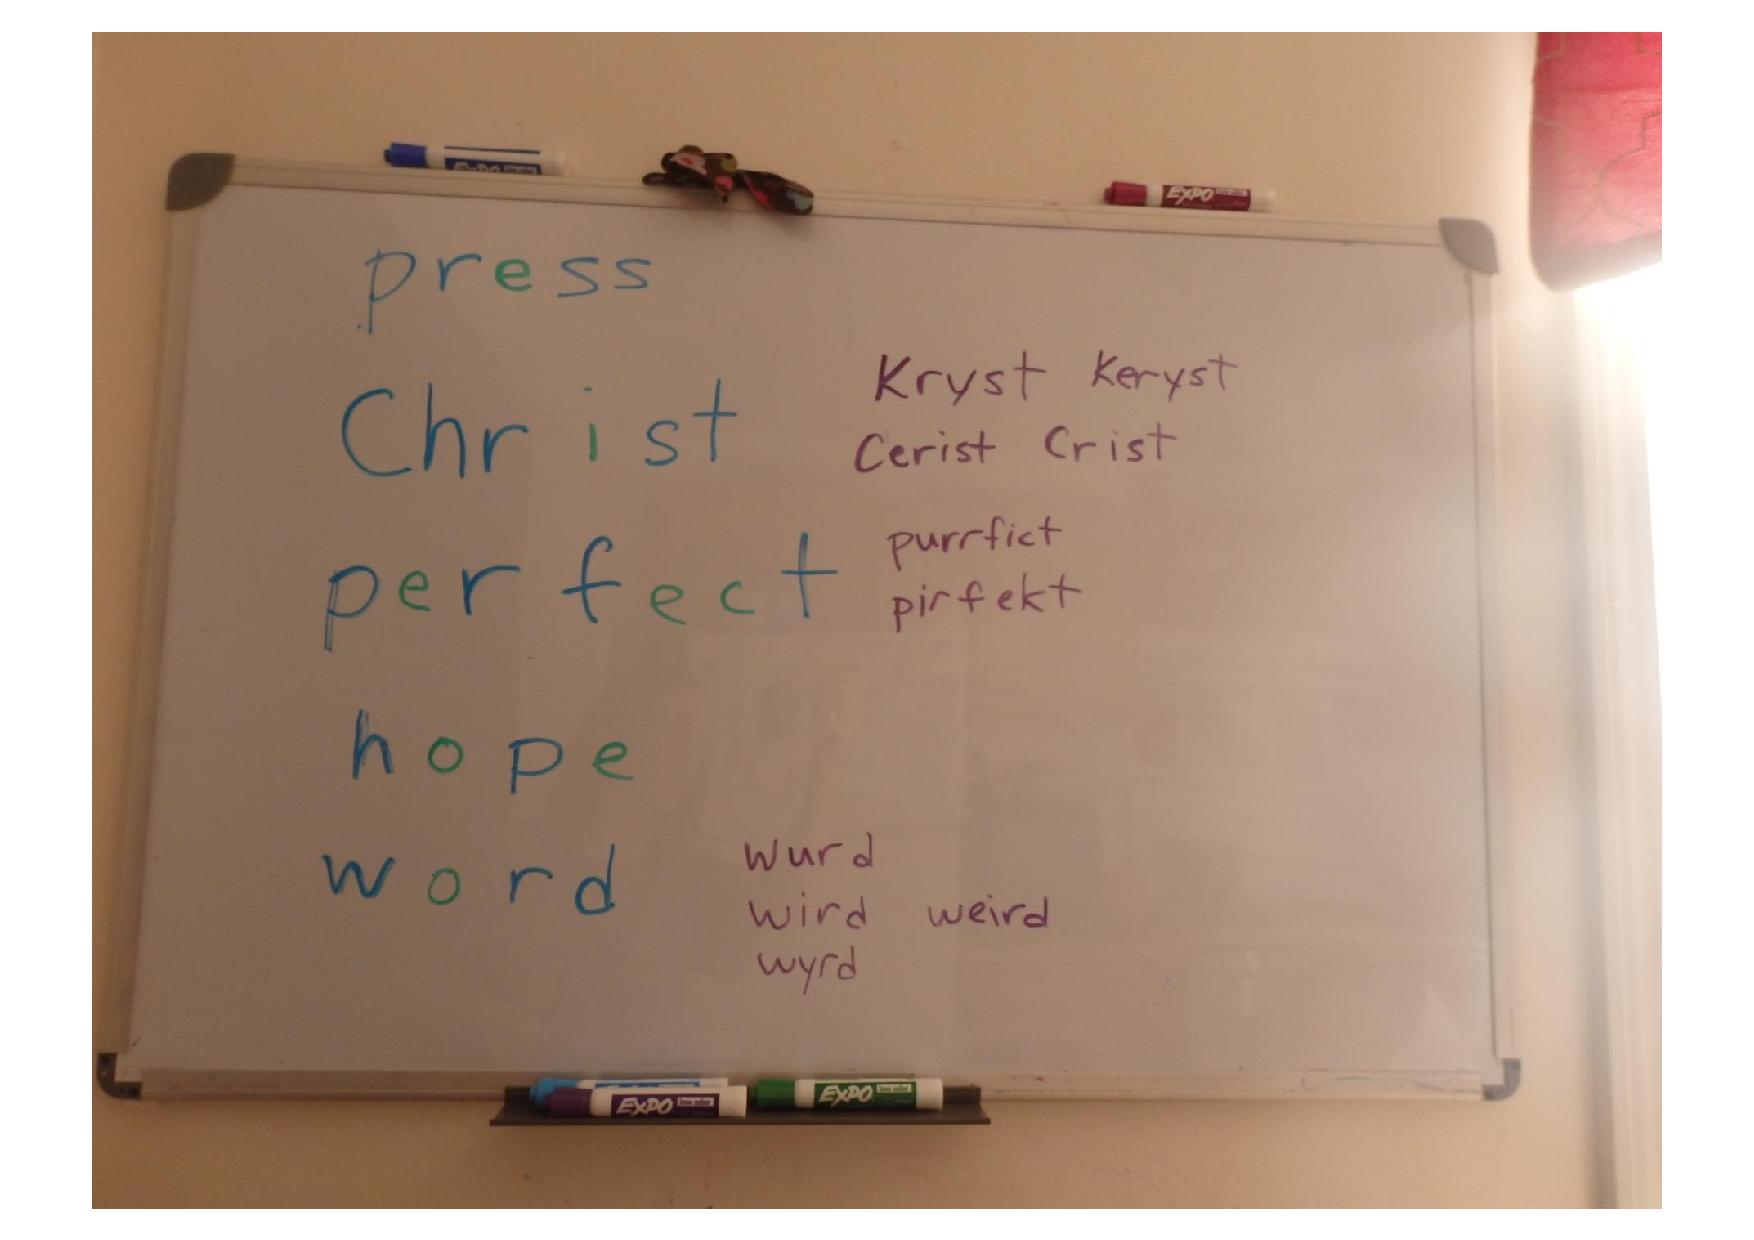 EXPO
EXPO
press
Christ Kryst Keryst
Cerist Crist
perfect purrfict
pirfekt
hope
word wurd
wird weird
wyrd
EXPO
EXPO